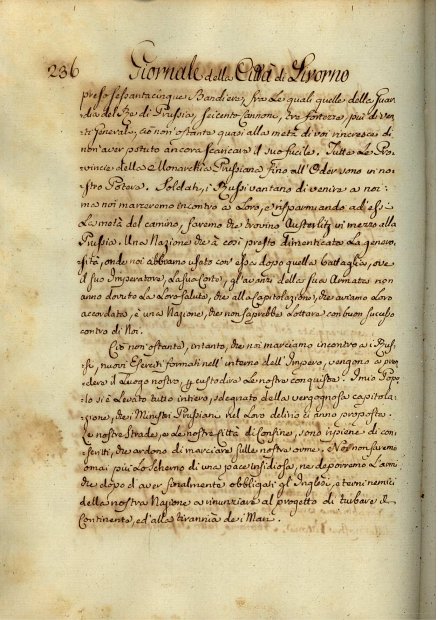 236 Giornale della Città di Livorno
preso sessantacinque Bandiere, fra le quali quelle della Guar-
dia del Re di Prussia, seicento Cannoni, tre fortezze, più di ven-
ti Generali, ciò non ostante quasi alla metà di voi rincresce di
non aver potuto ancora scaricare il suo fucile. Tutte le Pro-
vincie della Monarchia Prussiana fino all'Oder sono in no-
stro Potere. Soldati, i Russi vantano di venire a noi:
ma noi marceremo incontro a loro, e risparmiando ad essi
la metà del camino, faremo che trovino Austerlitz in mezzo alla
Prussia. Una Nazione che à così presto dimenticata la genero-
sità, onde noi abbiamo usato con essa dopo quella battaglia, ove
il suo Imperatore, la sua Corte, gl'avanzi della sua Armata non
anno dovuto la loro salute, che alla Capitolazione, che avremo loro
accordata, è una Nazione, che non saprebbe lottare con buon successo
contro di Noi.
Ciò non ostante, intanto, che noi marciamo incontro ai Rus-
si, nuovi Eserciti formati nell'interno dell'Impero, vengono a pren-
dere il luogo nostro, p custodire le nostre conquiste. I miei Popo-
li si è levato tutto intiero, sdegnato della vergognosa capitola-
zione, che i Ministri Prussiani nel loro delirio ci anno proposta.
Le nostre Strade, e le nostre Città di Confine, sono ripiene di con-
scritti, che ardono di marciare sulle nostre orme. Noi non saremo
omai più lo scherno di una pace insidiosa, ne deporremo l'armi
che dopo d'aver finalmente obbligati gl'Inglesi, eterni nemici
della nostra Nazione a rinunziare al progetto di turbare il
Continente, ed alla tirannia de i Mari.